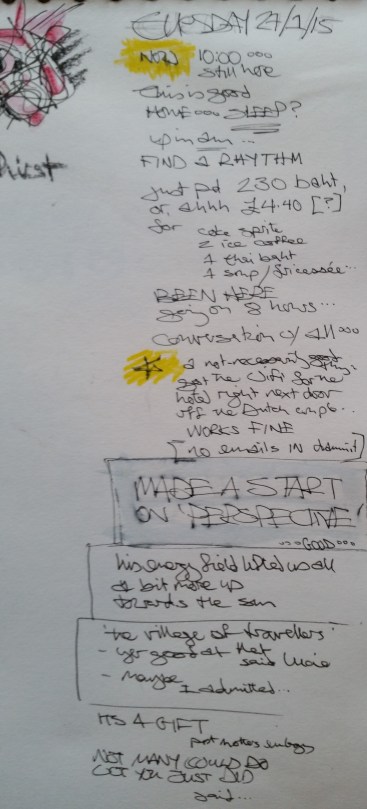 TUESDAY 27/1/15
NOW 10:00 ...
still here
this is good
HOME ... SLEEP?
up in am ...
FIND A RHYTHM
just pd 230 baht,
or, ahhh £4.40 [?]
for coke sprite
2 ice coffee
1 thai baht
1 soup / fricassée...
BEEN HERE
going on 8 hours...
conversation w/ all ...
a not-necessarily good thing-
got the wifi for the
hotel right next door
off the Dutch couple..
WORKS FINE
[no emails IN dammit]
MADE A START
ON 'PERSPECTIVE'
... GOOD ...
his energy field lifted us all
a bit more up
towards the sun
'the village of travellers'
- yer good at that
said
- maybe
I admitted...
ITS A GIFT
NOT MANY COULD DO
WOT YOU JUST DID
said...